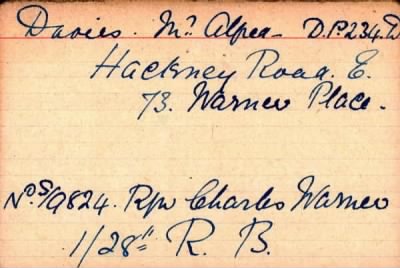 Davies. Mr Alpea - D.P. 234. D
Hackney Road. E.
73. Warner Place.
No. S/9824. Rfn Charles Warner
1/28th R. B.